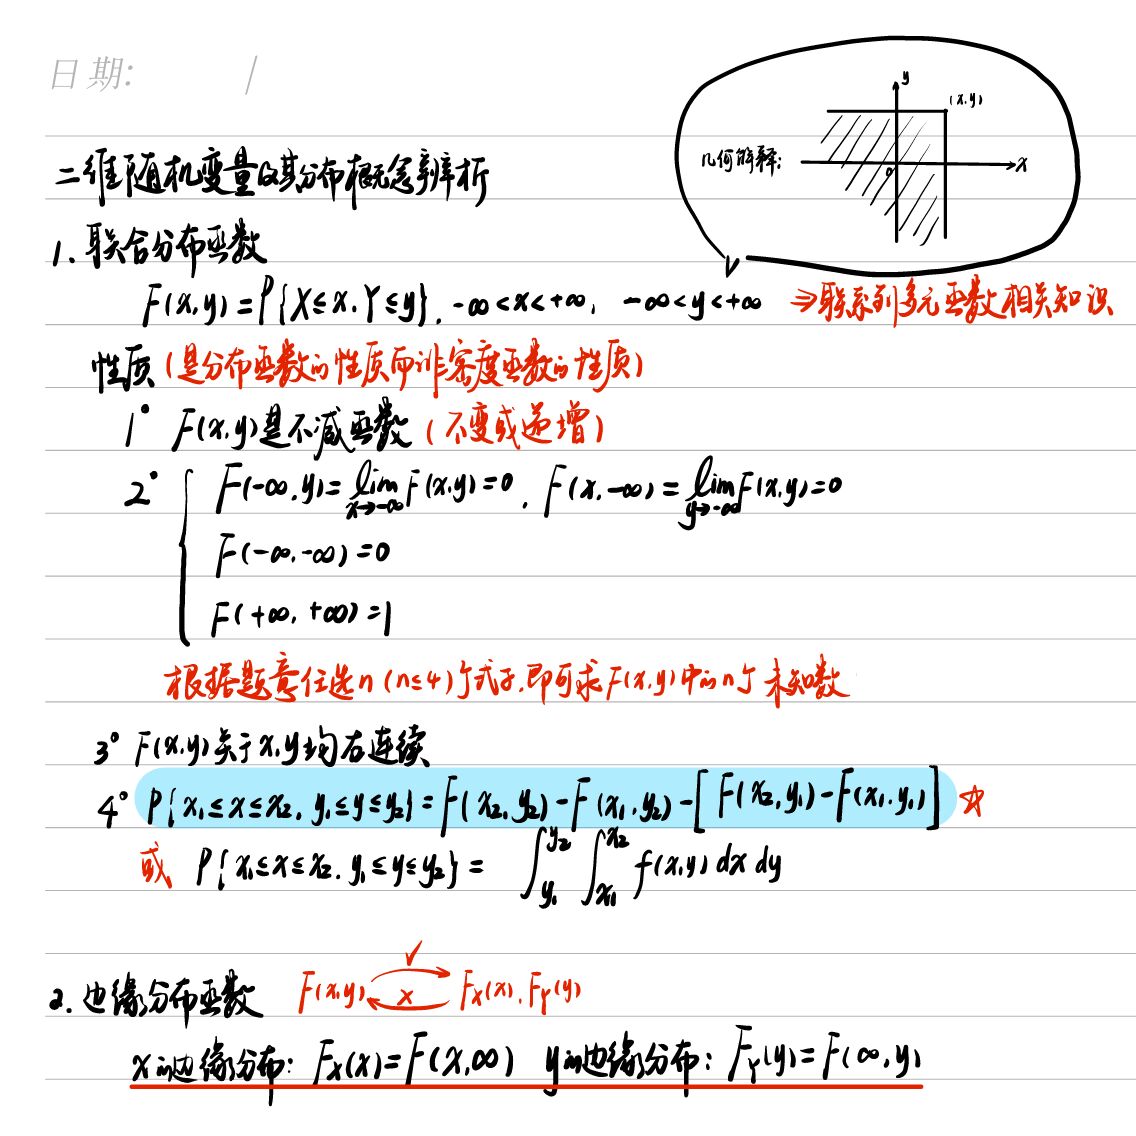 日期: /
y
(x,y)
几何解释:
x
0
二维随机变量及其分布概念辨析
1. 联合分布函数
F(x,y)=P{X≤x,Y≤y}, -∞<x<+∞, -∞<y<+∞ ⇒联系到多元函数相关知识
性质(是分布函数的性质而非密度函数的性质)
1° F(x,y)是不减函数(不变或递增)
2° { F(-∞,y)=lim x→-∞ F(x,y)=0, F(x,-∞)=lim y→-∞ F(x,y)=0
F(-∞,-∞)=0
F(+∞,+∞)=1
根据题意任选n(n≤4)个式子,即可求F(x,y)中的n个未知数
3° F(x,y)关于x,y均右连续
4° P{x₁≤x≤x₂, y₁≤y≤y₂}=F(x₂,y₂)-F(x₁,y₂)-[F(x₂,y₁)-F(x₁,y₁)] ☆
或 P{x₁≤x≤x₂, y₁≤y≤y₂}= ∫y₁^y₂ ∫x₁^x₂ f(x,y)dxdy
✓
2. 边缘分布函数 F(x,y) × F_X(x), F_Y(y)
x的边缘分布: F_X(x)=F(x,∞) y的边缘分布: F_Y(y)=F(∞,y)